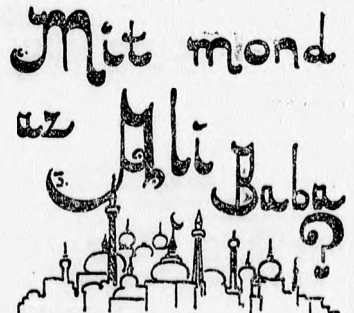 Mit mond
az Ali
Baba?